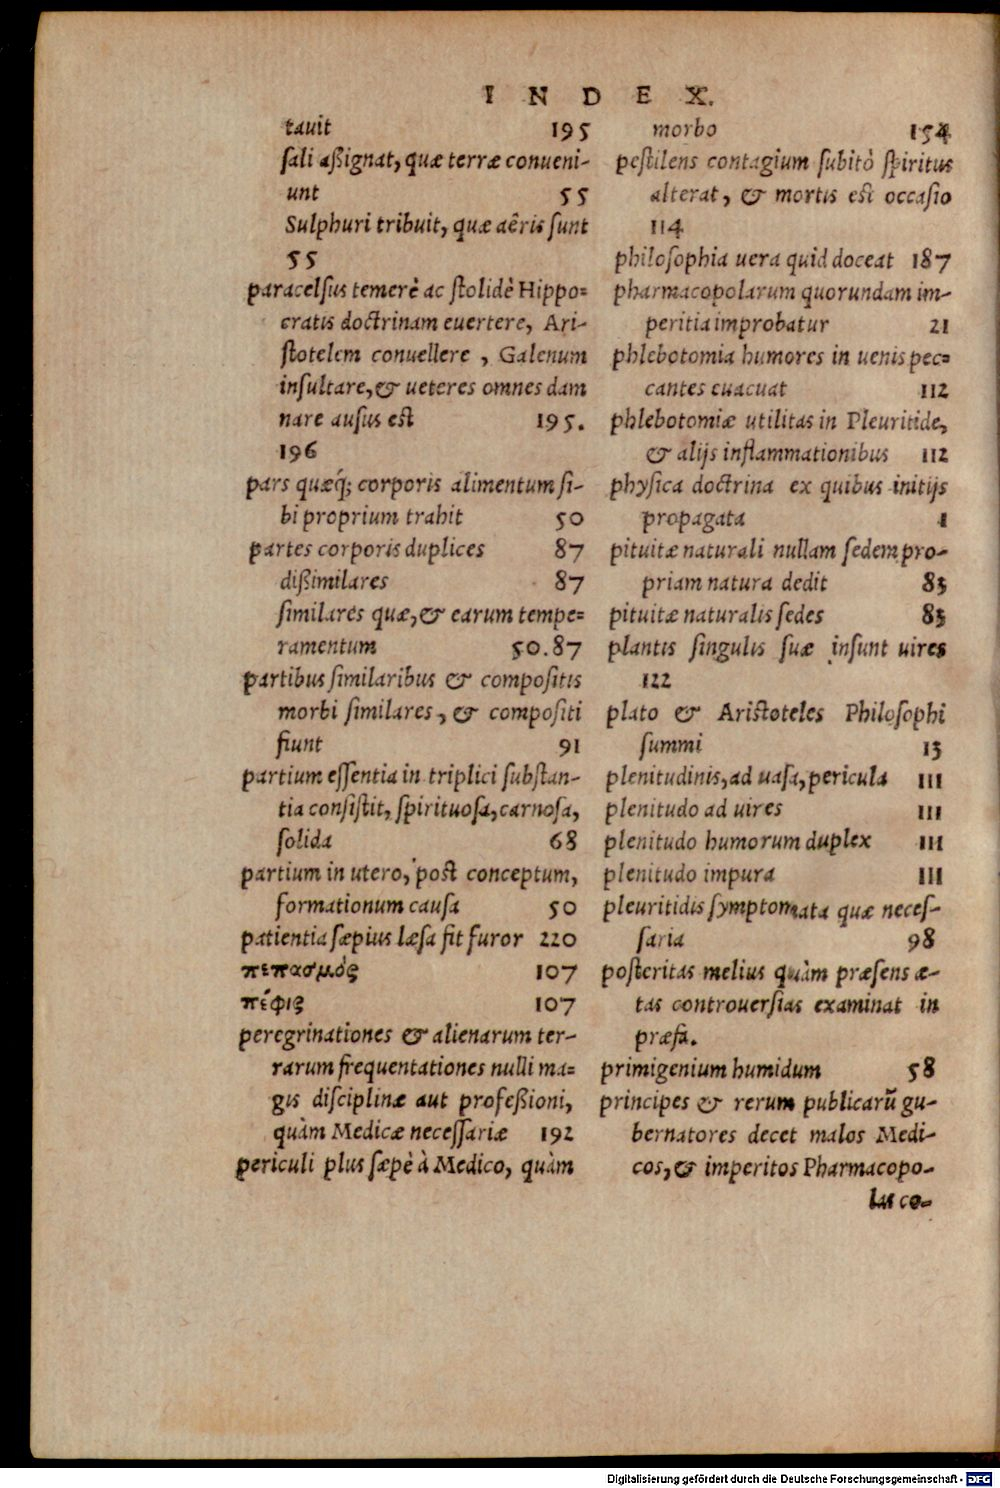 INDEX.
tauit 195
sali aßignat, quæ terræ conueni-
unt 55
Sulphuri tribuit, quæ aëris sunt
55
paracelsus temerè ac stolidè Hippo=
cratis doctrinam euertere, Ari-
stotelem conuellere, Galenum
insultare, & ueteres omnes dam
nare ausus est 195.
196
pars quæq; corporis alimentum si-
bi proprium trahit 50
partes corporis duplices 87
dißimilares 87
similares quæ, & earum tempe=
ramentum 50.87
partibus similaribus & compositis
morbi similares, & compositi
fiunt 91
partium essentia in triplici substan-
tia consistit, spirituosa, carnosa,
solida 68
partium in utero, post conceptum,
formationum causa 50
patientia sæpius læsa fit furor 220
πεπασμὸς 107
πέψις 107
peregrinationes & alienarum ter-
rarum frequentationes nulli ma=
gis disciplinæ aut profeßioni,
quàm Medicæ necessariæ 192
periculi plus sæpè à Medico, quàm
morbo 154
pestilens contagium subitò spiritus
alterat, & mortis est occasio
114
philosophia uera quid doceat 187
pharmacopolarum quorundam im-
peritia improbatur 21
phlebotomia humores in uenis pec=
cantes euacuat 112
phlebotomiæ utilitas in Pleuritide,
& alijs inflammationibus 112
physica doctrina ex quibus initijs
propagata 1
pituitæ naturali nullam sedem pro-
priam natura dedit 83
pituitæ naturalis sedes 83
plantis singulis suæ insunt uires
122
plato & Aristoteles Philosophi
summi 13
plenitudinis, ad uasa, pericula 111
plenitudo ad uires 111
plenitudo humorum duplex 111
plenitudo impura 111
pleuritidis symptomata quæ neces-
saria 98
posteritas melius quàm præsens æ-
tas controuersias examinat in
præfa.
primigenium humidum 58
principes & rerum publicarũ gu-
bernatores decet malos Medi-
cos, & imperitos Pharmacopo-
las co-
Digitalisierung gefördert durch die Deutsche Forschungsgemeinschaft - DFG